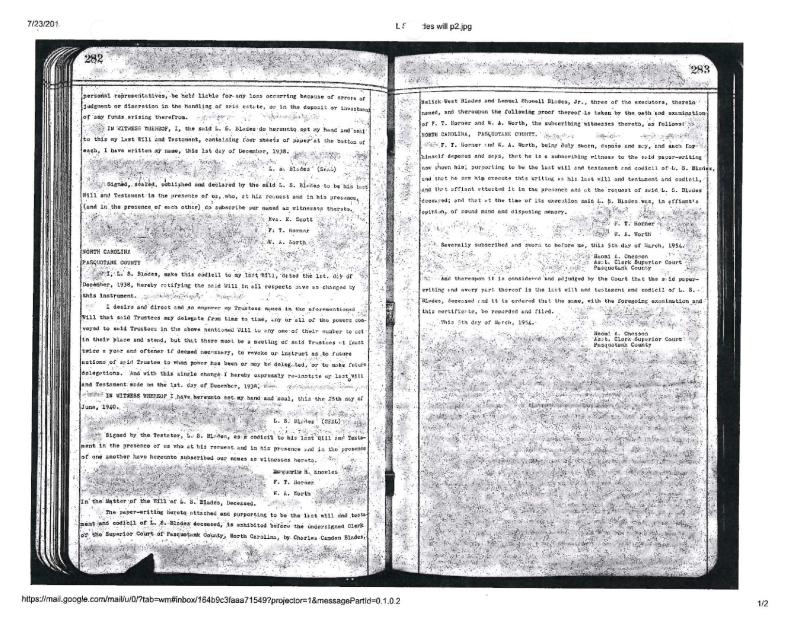 7/23/201
des will p2.jpg
282
personal representatives, be held liable for any loss occurring because of errors of
judgment or discretion in the handling of said estate, or in the deposit or investment
of any funds arising therefrom.
IN WITNESS THEREOF, I, the said L. S. Blades do hereunto set my hand and seal
to this my Last Will and Testament, containing four sheets of paper at the bottom of
each, I have written my name, this 1st day of December, 1938.
L. S. Blades (Seal)
Signed, sealed, published and declared by the said L. S. Blades to be his last
Will and Testament in the presence of us, who, at his request and in his presence,
(and in the presence of each other) do subscribe our names as witnesses thereto.
K. Scott
F. T. Horner
W. A. Worth
NORTH CAROLINA
PASQUOTANK COUNTY
I, L. S. Blades, make this codicil to my last Will, dated the 1st. day of
December, 1938, hereby ratifying the said Will in all respects save as changed by
this instrument.
I desire and direct and so empower my Trustees named in the aforementioned
Will that said Trustees may delegate from time to time, any or all of the powers con-
veyed to said Trustees in the above mentioned Will to any one of their number to act
in their place and stead, but that there must be a meeting of said Trustees at least
twice a year and oftener if deemed necessary, to revoke or instruct as to future
actions of said Trustee to whom power has been or may be delegated, or to make future
delegations. And with this single change I hereby expressly re-institute my last Will
and Testament made on the 1st. day of December, 1938.
IN WITNESS WHEREOF I have hereunto set my hand and seal, this the 25th day of
June, 1940.
L. S. Blades (SEAL)
Signed by the Testator, L. S. Blades, as a codicil to his last Will and Testa-
ment in the presence of us who at his request and in his presence and in the presence
of one another have hereunto subscribed our names as witnesses hereto.
Marguerite H. Knowles
F. T. Horner
W. A. Worth
In the Matter of the Will of L. S. Blades, Deceased.
The paper-writing hereto attached and purporting to be the last will and testa-
ment and codicil of L. S. Blades deceased, is exhibited before the undersigned Clerk
of the Superior Court of Pasquotank County, North Carolina, by Charles Camden Blades,
283
Melick West Blades and Lemuel Showell Blades, Jr., three of the executors, therein
named, and thereupon the following proof thereof is taken by the oath and examination
of F. T. Horner and W. A. Worth, the subscribing witnesses thereto, as follows:
NORTH CAROLINA, PASQUOTANK COUNTY.
F. T. Horner and W. A. Worth, being duly sworn, depose and say, and each for
himself deposes and says, that he is a subscribing witness to the said paper-writing
now shown him, purporting to be the last will and testament and codicil of L. S. Blades,
and that he saw him execute this writing as his last will and testament and codicil,
and that affiant attested it in the presence and at the request of said L. S. Blades
deceased; and that at the time of its execution said L. S. Blades was, in affiant's
opinion, of sound mind and disposing memory.
F. T. Horner
W. A. Worth
Severally subscribed and sworn to before me, this 5th day of March, 1954.
Naomi A. Chesson
Asst. Clerk Superior Court
Pasquotank County
And thereupon it is considered and adjudged by the Court that the said paper-
writing and every part thereof is the last will and testament and codicil of L. S.
Blades, deceased and it is ordered that the same, with the foregoing examination and
this certificate, be recorded and filed.
This 5th day of March, 1954.
Naomi A. Chesson
Asst. Clerk Superior Court
Pasquotank County
https://mail.google.com/mail/u/0/?tab=wm#inbox/164b9c3faaa71549?projector=1&messagePartId=0.1.0.2
1/2